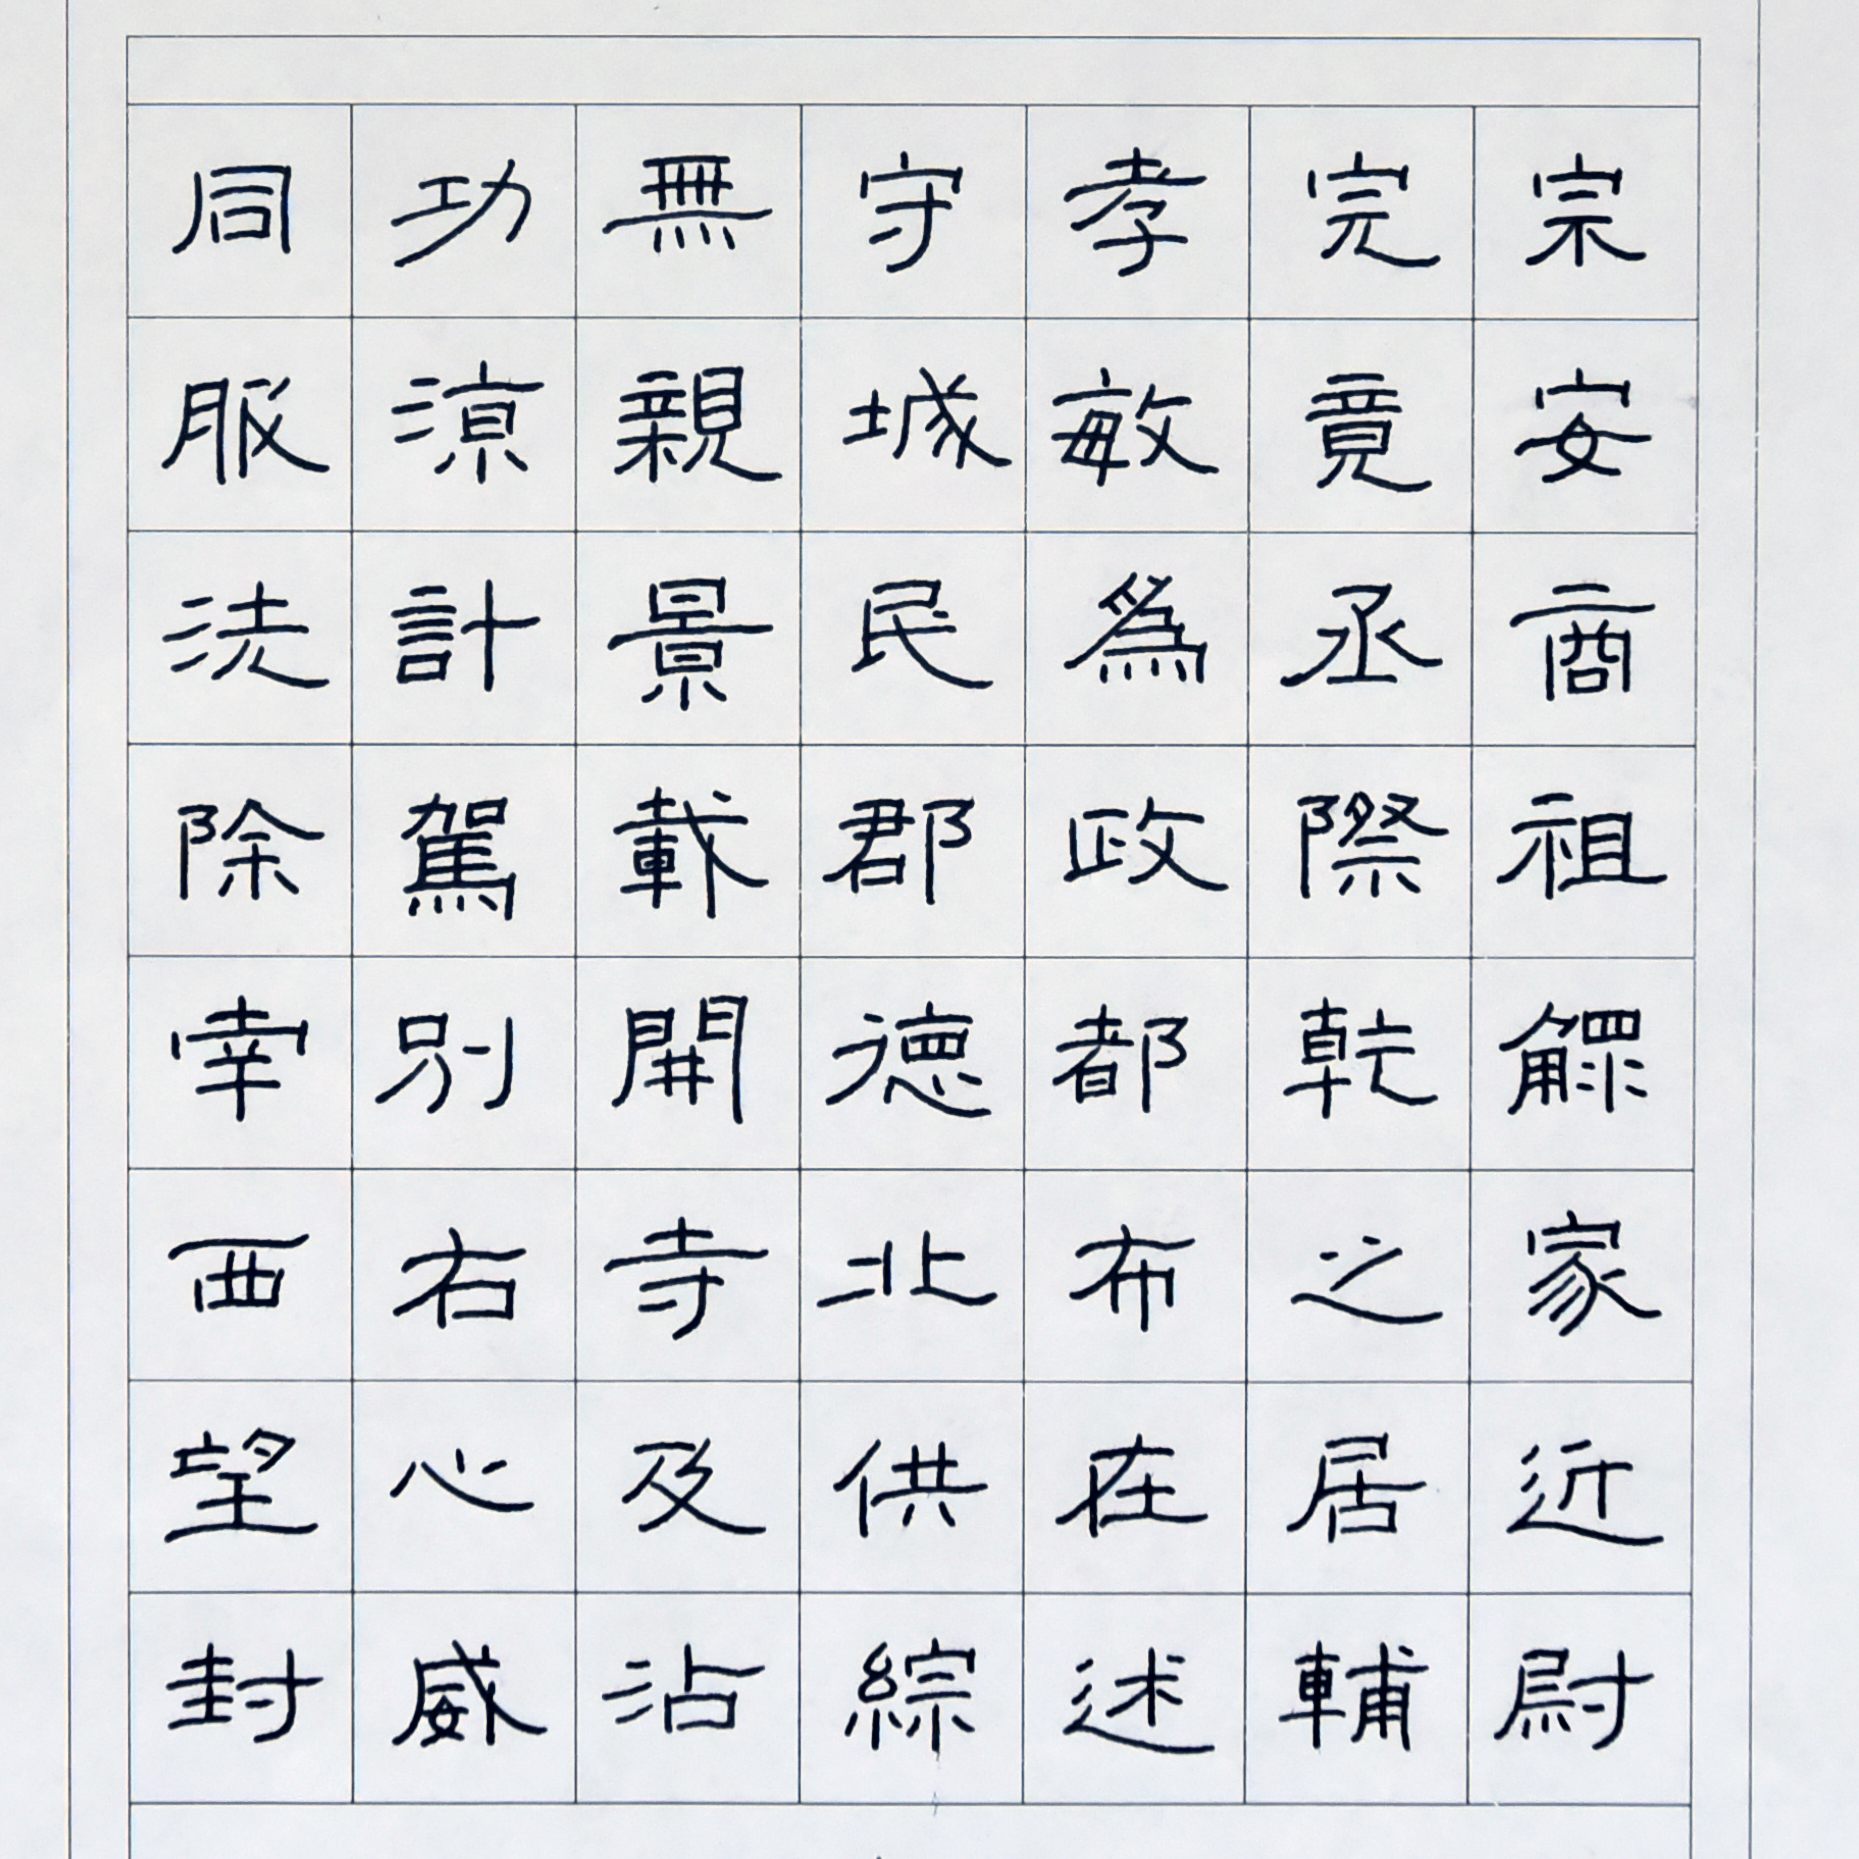 宗安商祖鰥家近尉
完竟丞際乾之居輔
孝敏為政都布在述
守城民郡德北供綜
無親景載開寺及沾
功涼計駕別右心威
同服法除幸西望封